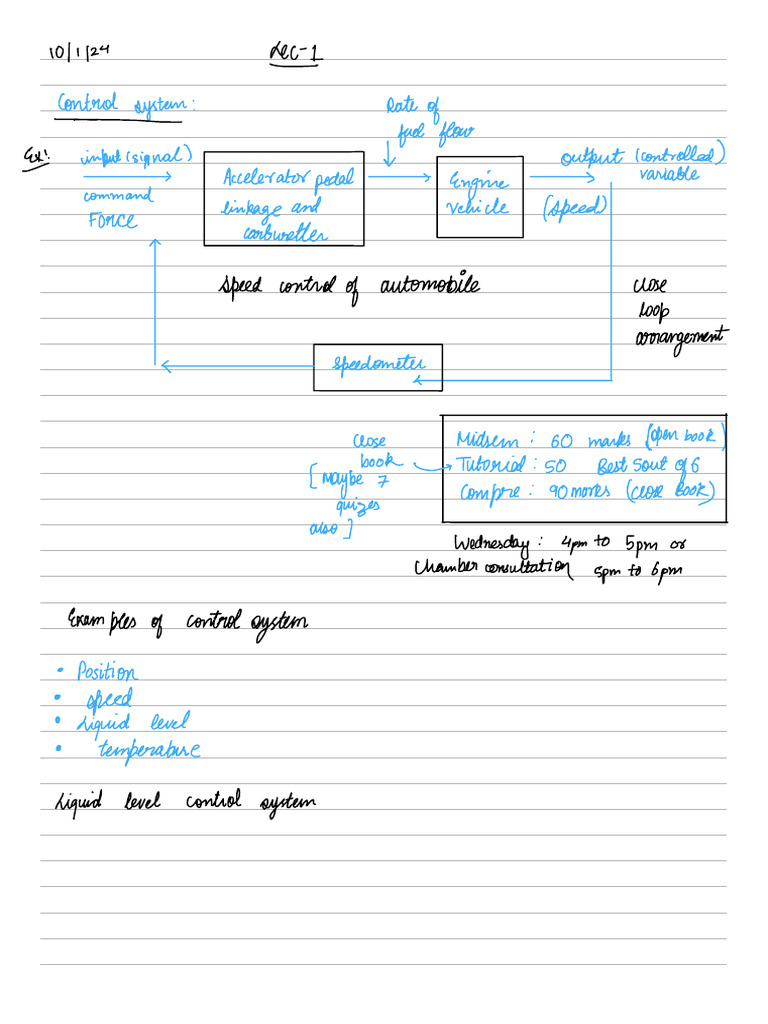 10/1/24
Lec-1
Control system:
Ex:
input (signal)
command
Force
Accelerator pedal
linkage and
carburetter
Rate of
fuel flow
Engine
vehicle
output (controlled)
variable
(speed)
speed control of automobile
close
loop
arrangement
speedometer
close
book
[Maybe 7
quizes
also]
Midsem: 60 marks (open book)
Tutorial: 50 Best 5 out of 6
Compre: 90 marks (close book)
Wednesday: 4pm to 5pm or
Chamber consultation 5pm to 6pm
Examples of control system
• Position
• speed
• Liquid level
• temperature
Liquid level control system